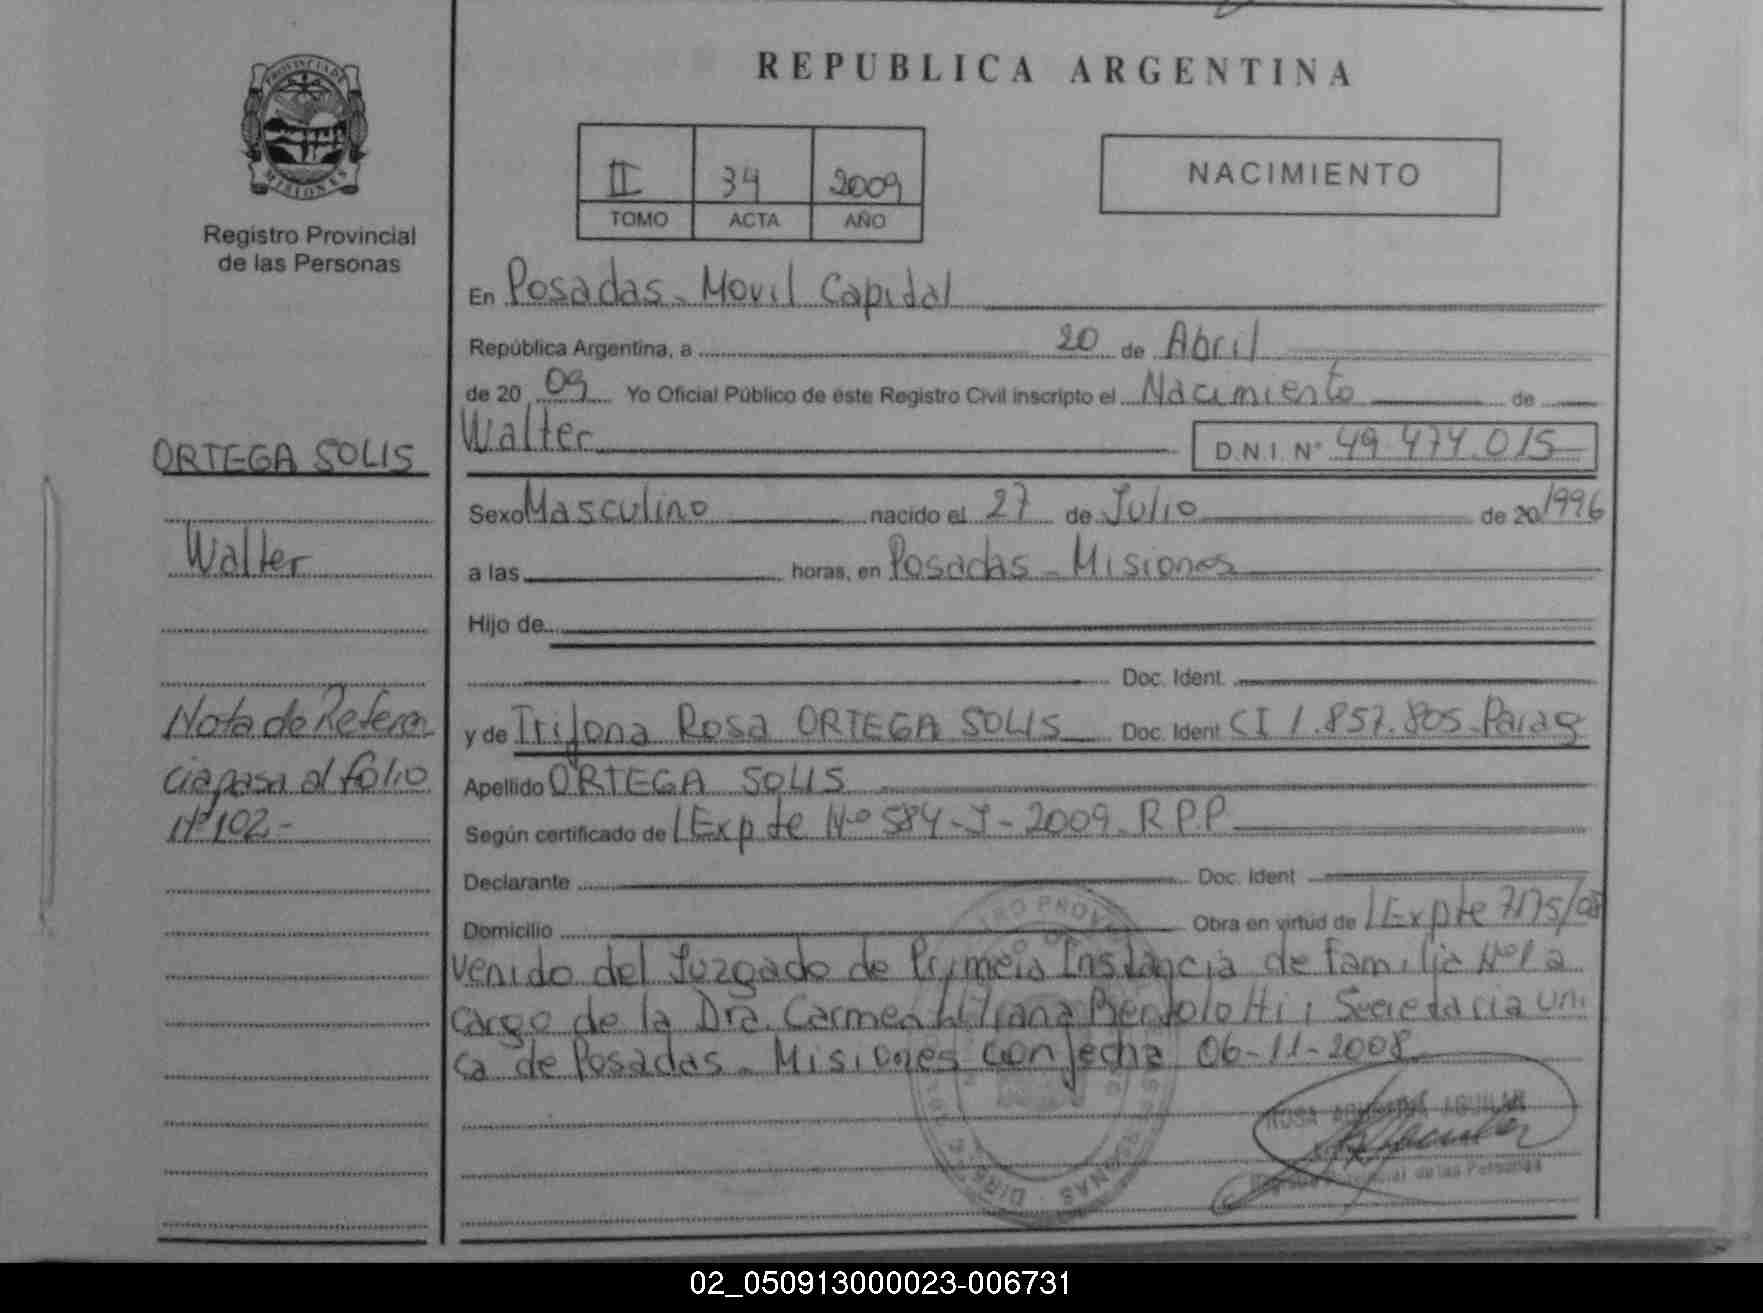 PROVINCIA DE
MISIONES
Registro Provincial
de las Personas
ORTEGA SOLIS
Walter
Nota de Referen
cia pasa al folio
Nº 102.-
REPUBLICA ARGENTINA
II 34 2009
TOMO ACTA AÑO
NACIMIENTO
En Posadas - Movil Capital
República Argentina, a 20 de Abril
de 20 09 Yo Oficial Público de éste Registro Civil inscripto el Nacimiento de
Walter D.N.I. Nº 49.474.015
Sexo Masculino nacido el 27 de Julio de 20/1996
a las horas, en Posadas - Misiones
Hijo de
Doc. Ident.
y de Trifona Rosa ORTEGA SOLIS Doc. Ident CI 1.857.805 Parag
Apellido ORTEGA SOLIS
Según certificado de Expte Nº 584-J-2009. R.P.P
Declarante Doc. Ident
Domicilio Obra en virtud de Expte 7175/08
venido del Juzgado de Primera Instancia de Familia Nº 1 a
cargo de la Dra. Carmen Liliana Bertolotti; Secretaria Uni
ca de Posadas - Misiones con fecha 06-11-2008
ROSA AGUILAR
de las Personas
02_050913000023-006731